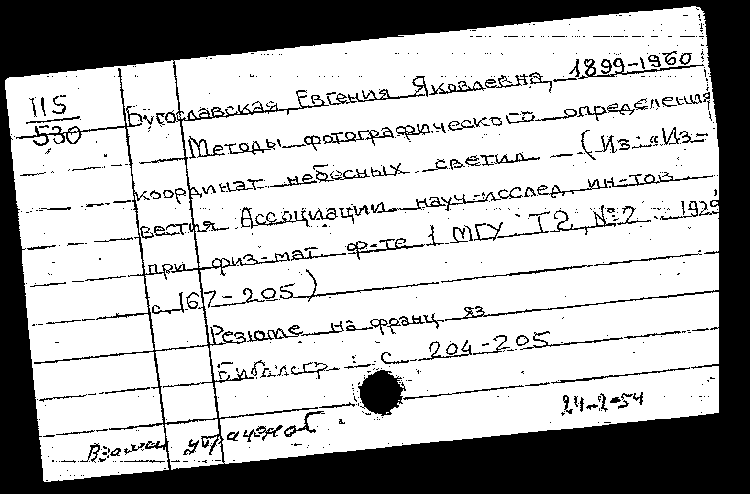 II5
530
Бугославская, Евгения Яковлевна, 1899-1960
Методы фотографического определения
координат небесных светил - (Из: «Из-
вестия Ассоциации науч-исслед. ин-тов
при физ-мат. ф-те 1 МГУ Т2, №2 1929
с. 167-205)
Резюме на франц яз
Библиогр.: с. 204-205
24-2-54
Взамен утраченной.